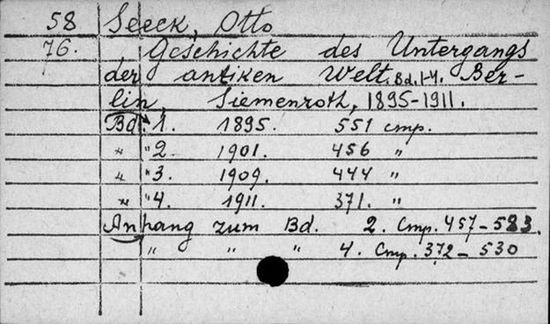 58 Seeck, Otto
76. Geschichte des Untergangs
der antiken Welt. Bd. 1-4. Ber-
lin, Siemenroth, 1895-1911.
Bd. 1. 1895. 551 стр.
" "2. 1901. 456 "
" "3. 1909. 444 "
" "4. 1911. 371. "
Anhang zum Bd. 2. Стр. 457-583.
" " " 4. Стр. 372-530